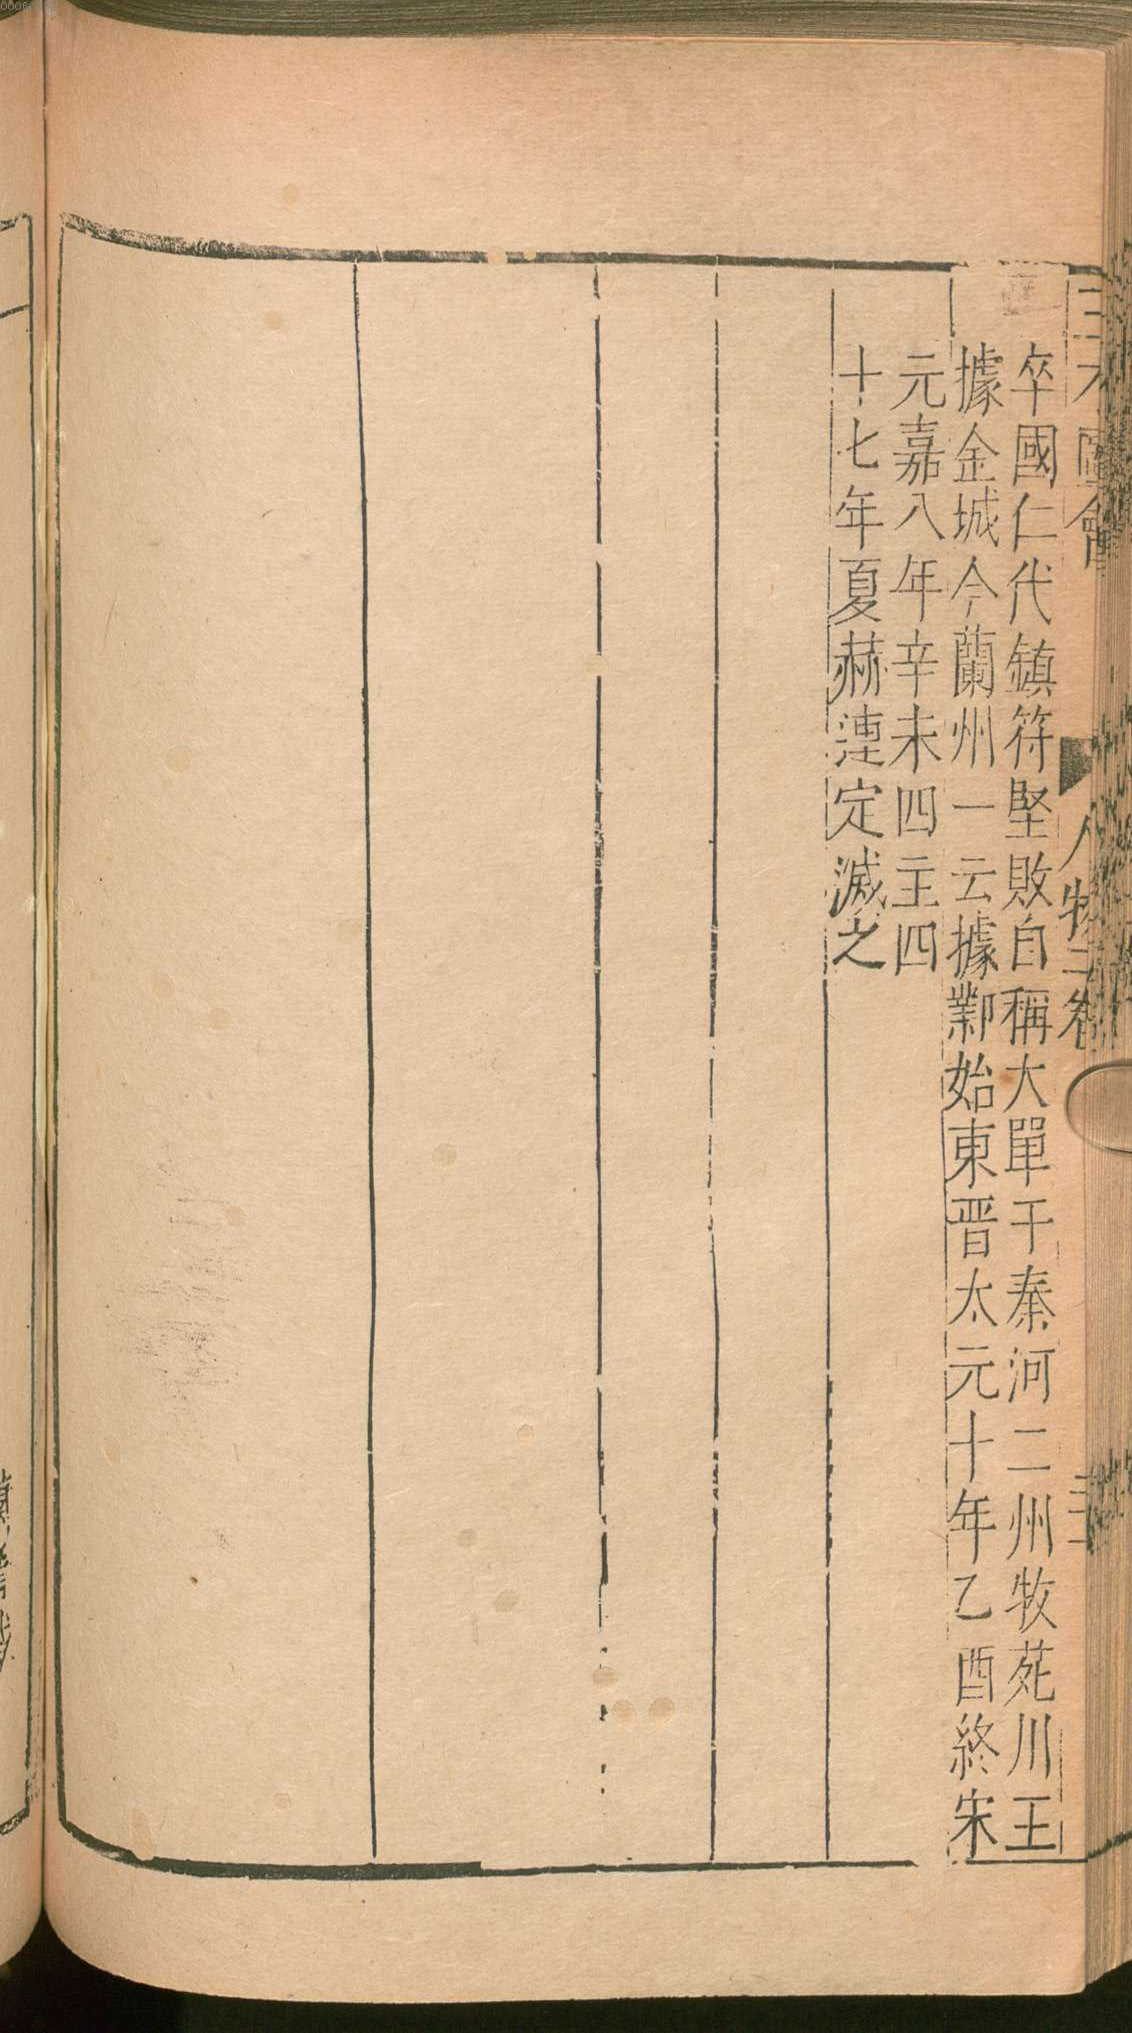 三才圖會 人物三卷
卒國仁代鎮符堅敗自稱大單于秦河二州牧苑川王
據金城今蘭州一云據鄴始東晋太元十年乙酉終宋
元嘉八年辛未四主四
十七年夏赫漣定滅之